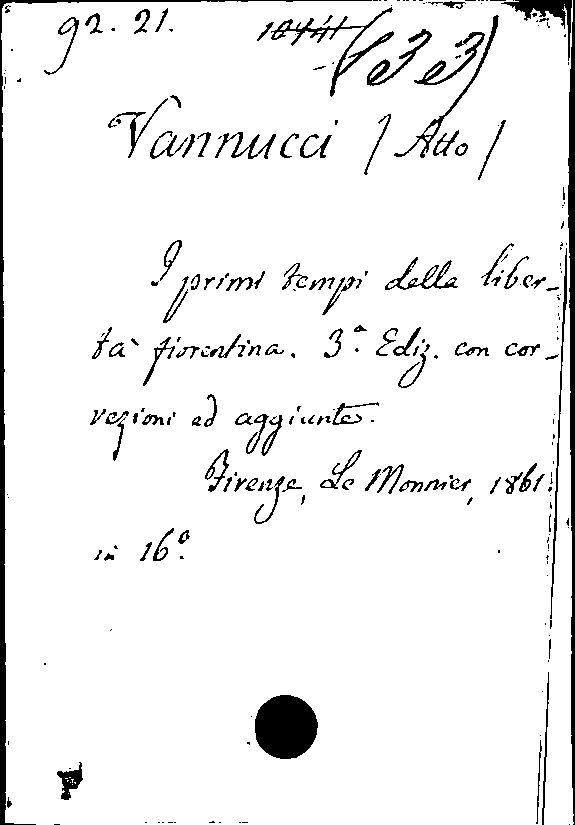 92. 21. 10441
Vannucci / Atto /
I primi tempi della liber-
tà fiorentina. 3ª. Ediz. con cor-
rezioni ed aggiunte.
Firenze, Le Monnier, 1861.
in 16º.